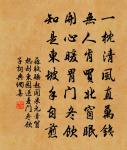 一枕清風直萬錢
無人肯買北窗眠
開心暖胃門冬飲
知是東坡手自煎
蘇軾睡起聞米元章冒
熱到東園送麥門冬飲
子 典網集